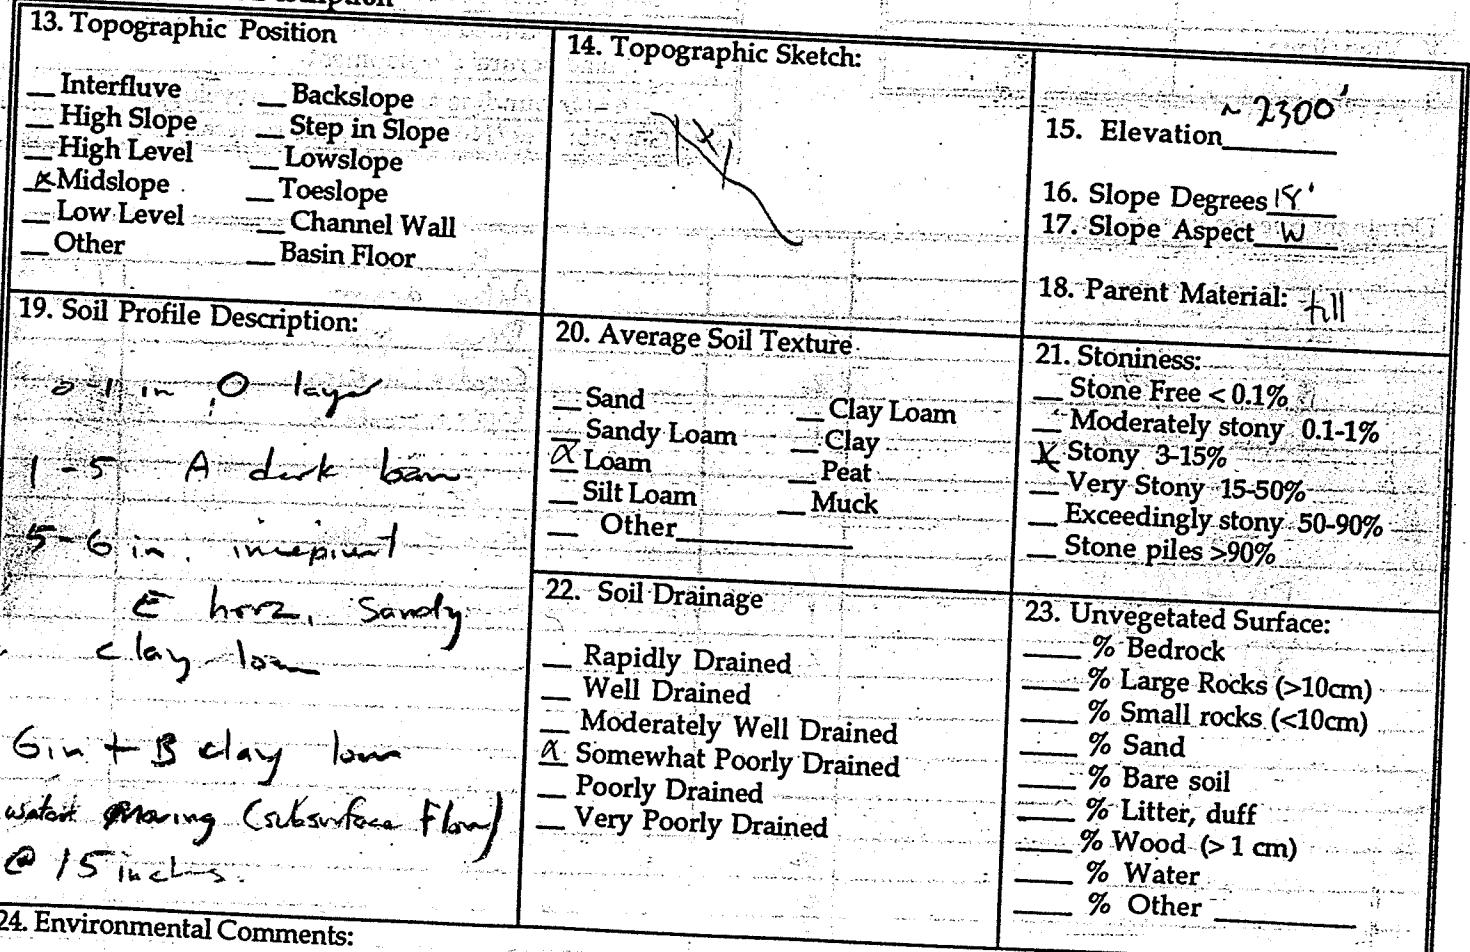 13. Topographic Position
__ Interfluve __ Backslope
__ High Slope __ Step in Slope
__ High Level __ Lowslope
x Midslope __ Toeslope
__ Low Level __ Channel Wall
__ Other __ Basin Floor
14. Topographic Sketch:
x
~ 2300'
15. Elevation
16. Slope Degrees
17. Slope Aspect W
18. Parent Material: till
19. Soil Profile Description:
0-1 in O layer
1-5 A dark loam
5-6 in. incipient
E horz, Sandy
clay loam
6 in + B clay loam
water moving (subsurface flow)
@ 15 inches.
20. Average Soil Texture
__ Sand __ Clay Loam
__ Sandy Loam __ Clay
x Loam __ Peat
__ Silt Loam __ Muck
__ Other
21. Stoniness:
__ Stone Free < 0.1%
__ Moderately stony 0.1-1%
x Stony 3-15%
__ Very Stony 15-50%
__ Exceedingly stony 50-90%
__ Stone piles >90%
22. Soil Drainage
__ Rapidly Drained
__ Well Drained
__ Moderately Well Drained
x Somewhat Poorly Drained
__ Poorly Drained
__ Very Poorly Drained
23. Unvegetated Surface:
____ % Bedrock
____ % Large Rocks (>10cm)
____ % Small rocks (<10cm)
____ % Sand
____ % Bare soil
____ % Litter, duff
____ % Wood (> 1 cm)
____ % Water
____ % Other
24. Environmental Comments: